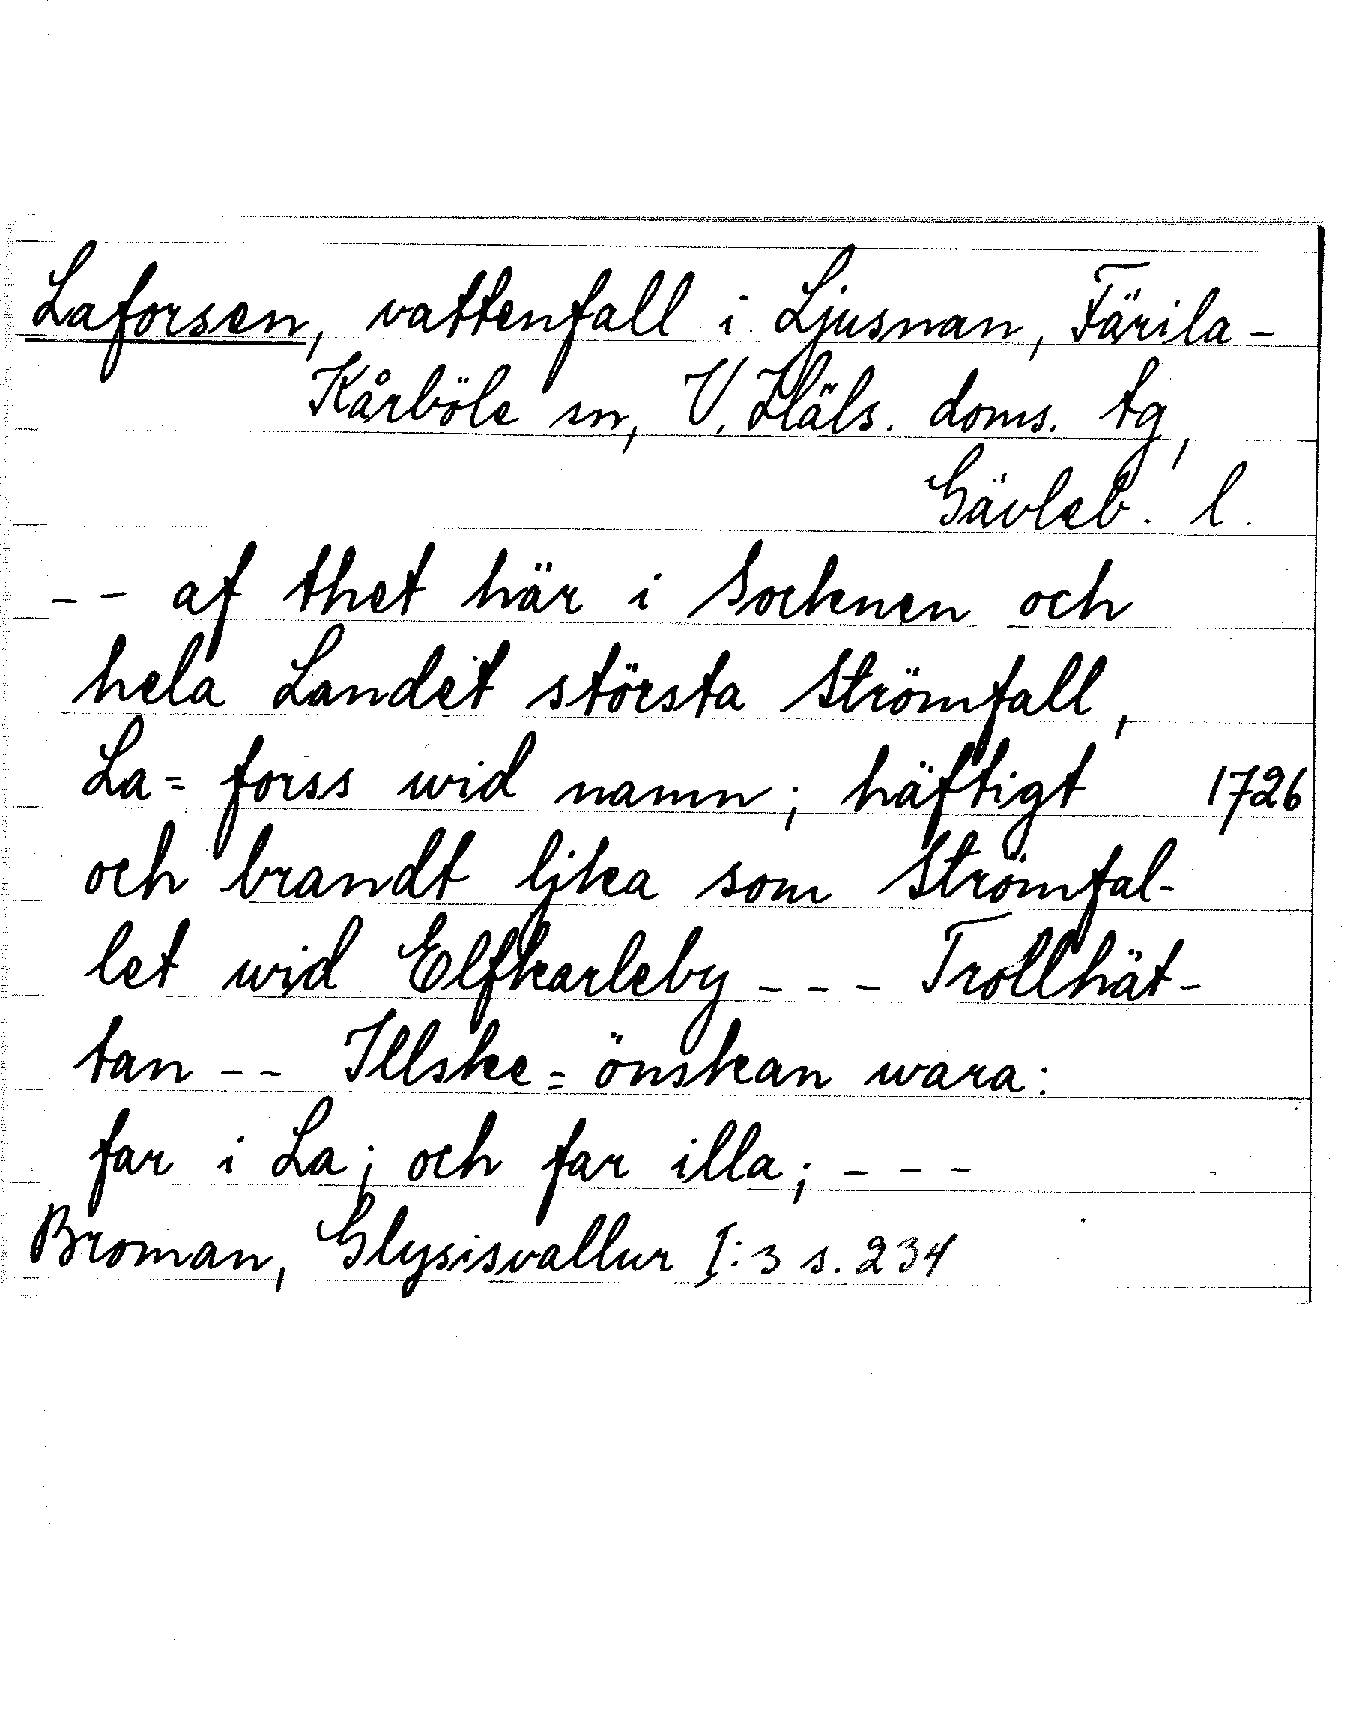 Laforsen, vattenfall i Ljusnan, Färila-
Kårböle sn, V. Häls. doms. tg,
Gävleb. l.
-- af thet här i Socknen och
hela Landet största Strömfall,
La= forss wid namn; häftigt 1726
och brandt lijka som Strömfal-
let wid Elfkarleby --- Trollhät-
tan -- Illske= önskan wara:
far i La; och far illa; ---
Broman, Glysisvallur I:3 s. 234